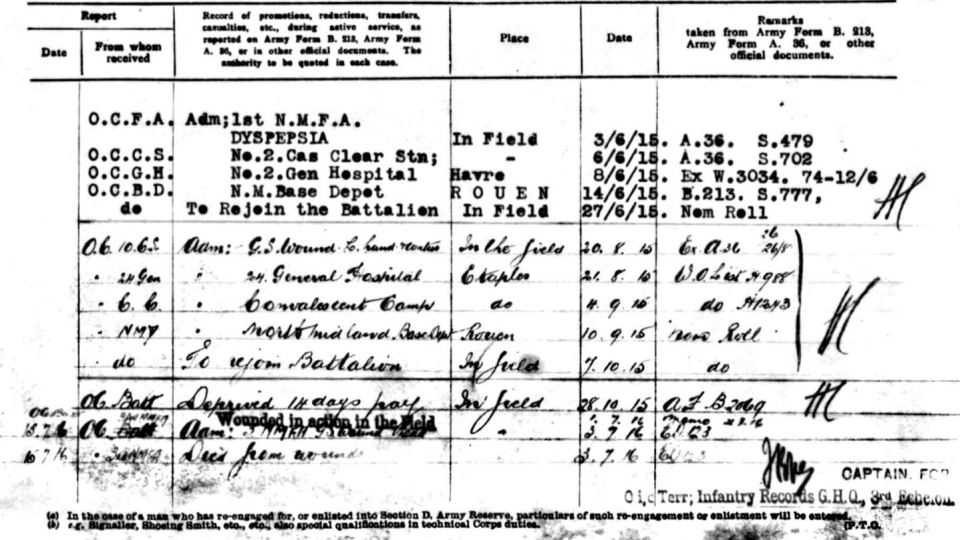 Report
Date
From whom received
Record of promotions, reductions, transfers, casualties, etc., during active service, as reported on Army Form B. 213, Army Form A. 36, or in other official documents. The authority to be quoted in each case.
Place
Date
Remarks
taken from Army Form B. 213, Army Form A. 36, or other official documents.
O.C.F.A. Adm;1st N.M.F.A.
DYSPEPSIA In Field 3/6/15. A.36. S.479
O.C.C.S. No.2.Cas Clear Stn; - 6/6/15. A.36. S.702
O.C.G.H. No.2.Gen Hospital Havre 8/6/15. Ex W.3034. 74-12/6
O.C.B.D. N.M.Base Depot ROUEN 14/6/15. B.213. S.777,
do To Rejoin the Battalion In Field 27/6/15. Nom Roll
O.C. 10.C.S. Adm: G.S. Wound L. hand In the field 20.8.15 Ex A 36 26/8
" 24 Gen " 24 General Hospital Etaples 21.8.15 W.O. List H 988
" C.C. " Convalescent Camp do 4.9.15 do H1243
" NM " North Midland Base Dept Rouen 10.9.15 Nom Roll
do To rejoin Battalion In field 7.10.15 do
OC. Batt Deprived 14 days pay In field 28.10.15 A.F. B2069
Wounded in action in the Field
15.7.16 OC Adm: " 3.7.16
15.7.16 " Died from wounds 3.7.16
CAPTAIN. FOR
O i/c Terr; Infantry Records G.H.Q., 3rd Echelon.
(a) In the case of a man who has re-engaged for, or enlisted into Section D, Army Reserve, particulars of such re-engagement or enlistment will be entered.
(b) e.g. Signaller, Shoeing Smith, etc., etc., also special qualifications in technical Corps duties. (P.T.O.